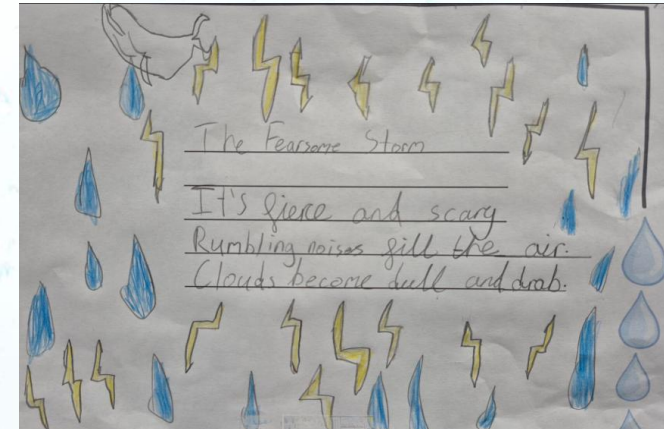 The Fearsome Storm
It's fierce and scary
Rumbling noises fill the air.
Clouds become dull and drab.